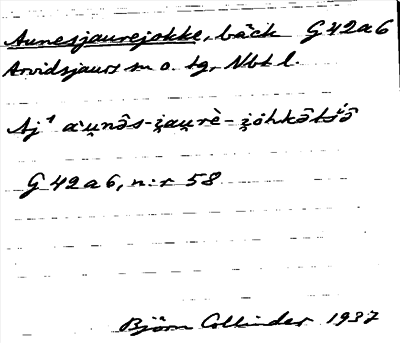 Aunesjaurejokke, bäck G 42 a 6
Arvidsjaurs sn o. tg, Nbt l.
Aj¹ a'u̯nə̄s-i̯au̯rè-i̯ŏhkə̄ts'ə̄
G 42 a 6, n:r 58
Björn Collinder 1937